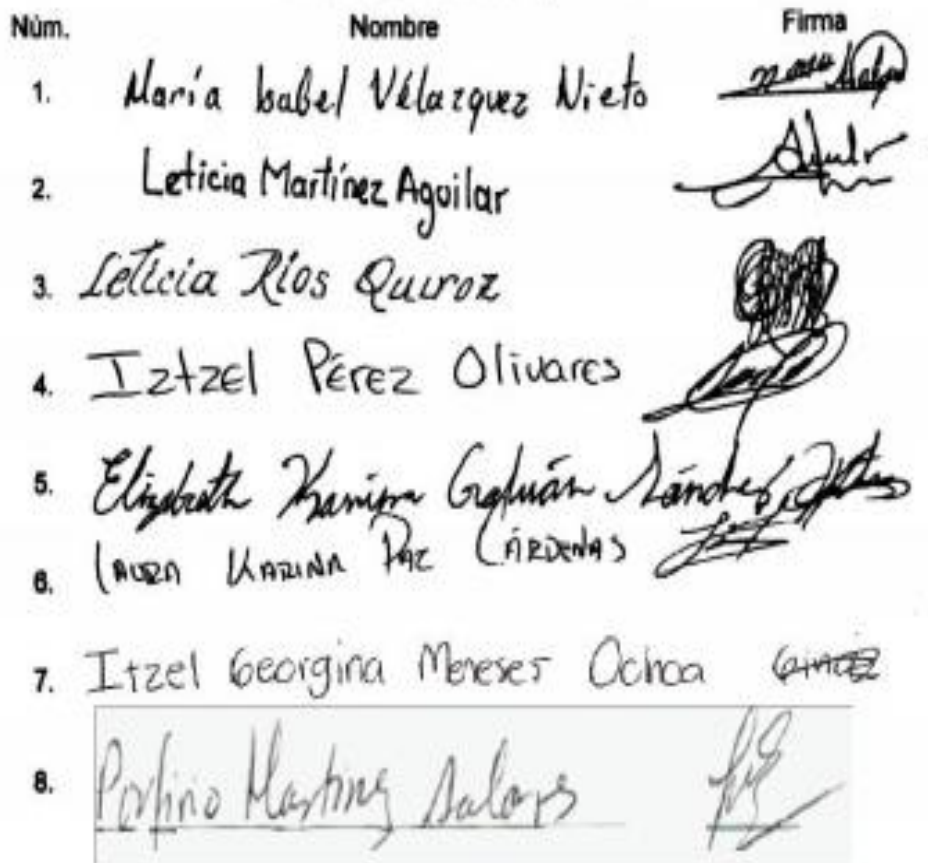 Núm. Nombre Firma
1. María Isabel Vélazquez Nieto
2. Leticia Martínez Aguilar
3. Leticia Ríos Quiroz
4. Iztzel Pérez Olivares
5. Elizabeth Karina Galván Sánchez
6. LAURA KARINA PAZ CÁRDENAS
7. Itzel Georgina Meneses Ochoa
8. Porfirio Martínez